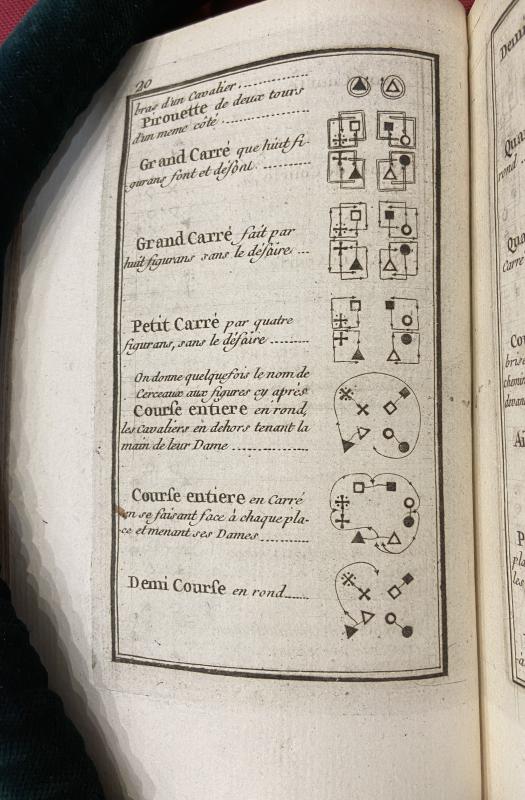 20
bras d'un Cavalier
Pirouette de deux tours
d'un meme côté
Grand Carré que huit fi-
gurans font et défont
Grand Carré fait par
huit figurans sans le défaire
Petit Carré par quatre
figurans, sans le défaire
On donne quelquefois le nom de
Cerceaux aux figures cy aprés
Courſe entiere en rond,
les Cavaliers en dehors tenant la
main de leur Dame
Courſe entiere en Carré
en se faisant face à chaque pla-
ce et menant ses Dames
Demi Courſe en rond